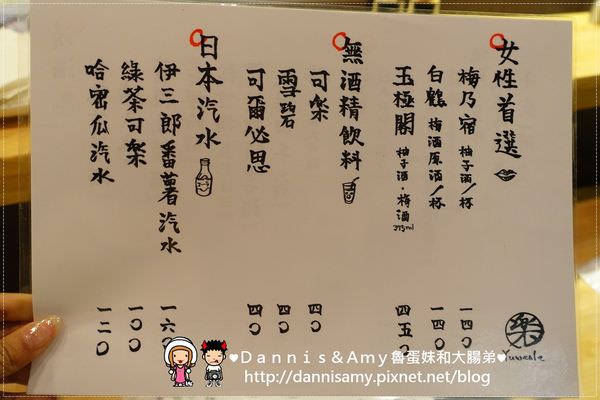 女性首選
梅乃宿 柚子酒/杯 一四〇
白鶴 梅酒原酒/杯 一四〇
玉極閣 柚子酒・梅酒 375ml 四五〇
無酒精飲料
可樂 四〇
雪碧 四〇
可爾必思 四〇
日本汽水
伊三郎番薯汽水 一六〇
綠茶可樂 一〇〇
哈密瓜汽水 一二〇
樂
Yuweale
♥Dannis&Amy魯蛋妹和大腸弟♥
http://dannisamy.pixnet.net/blog